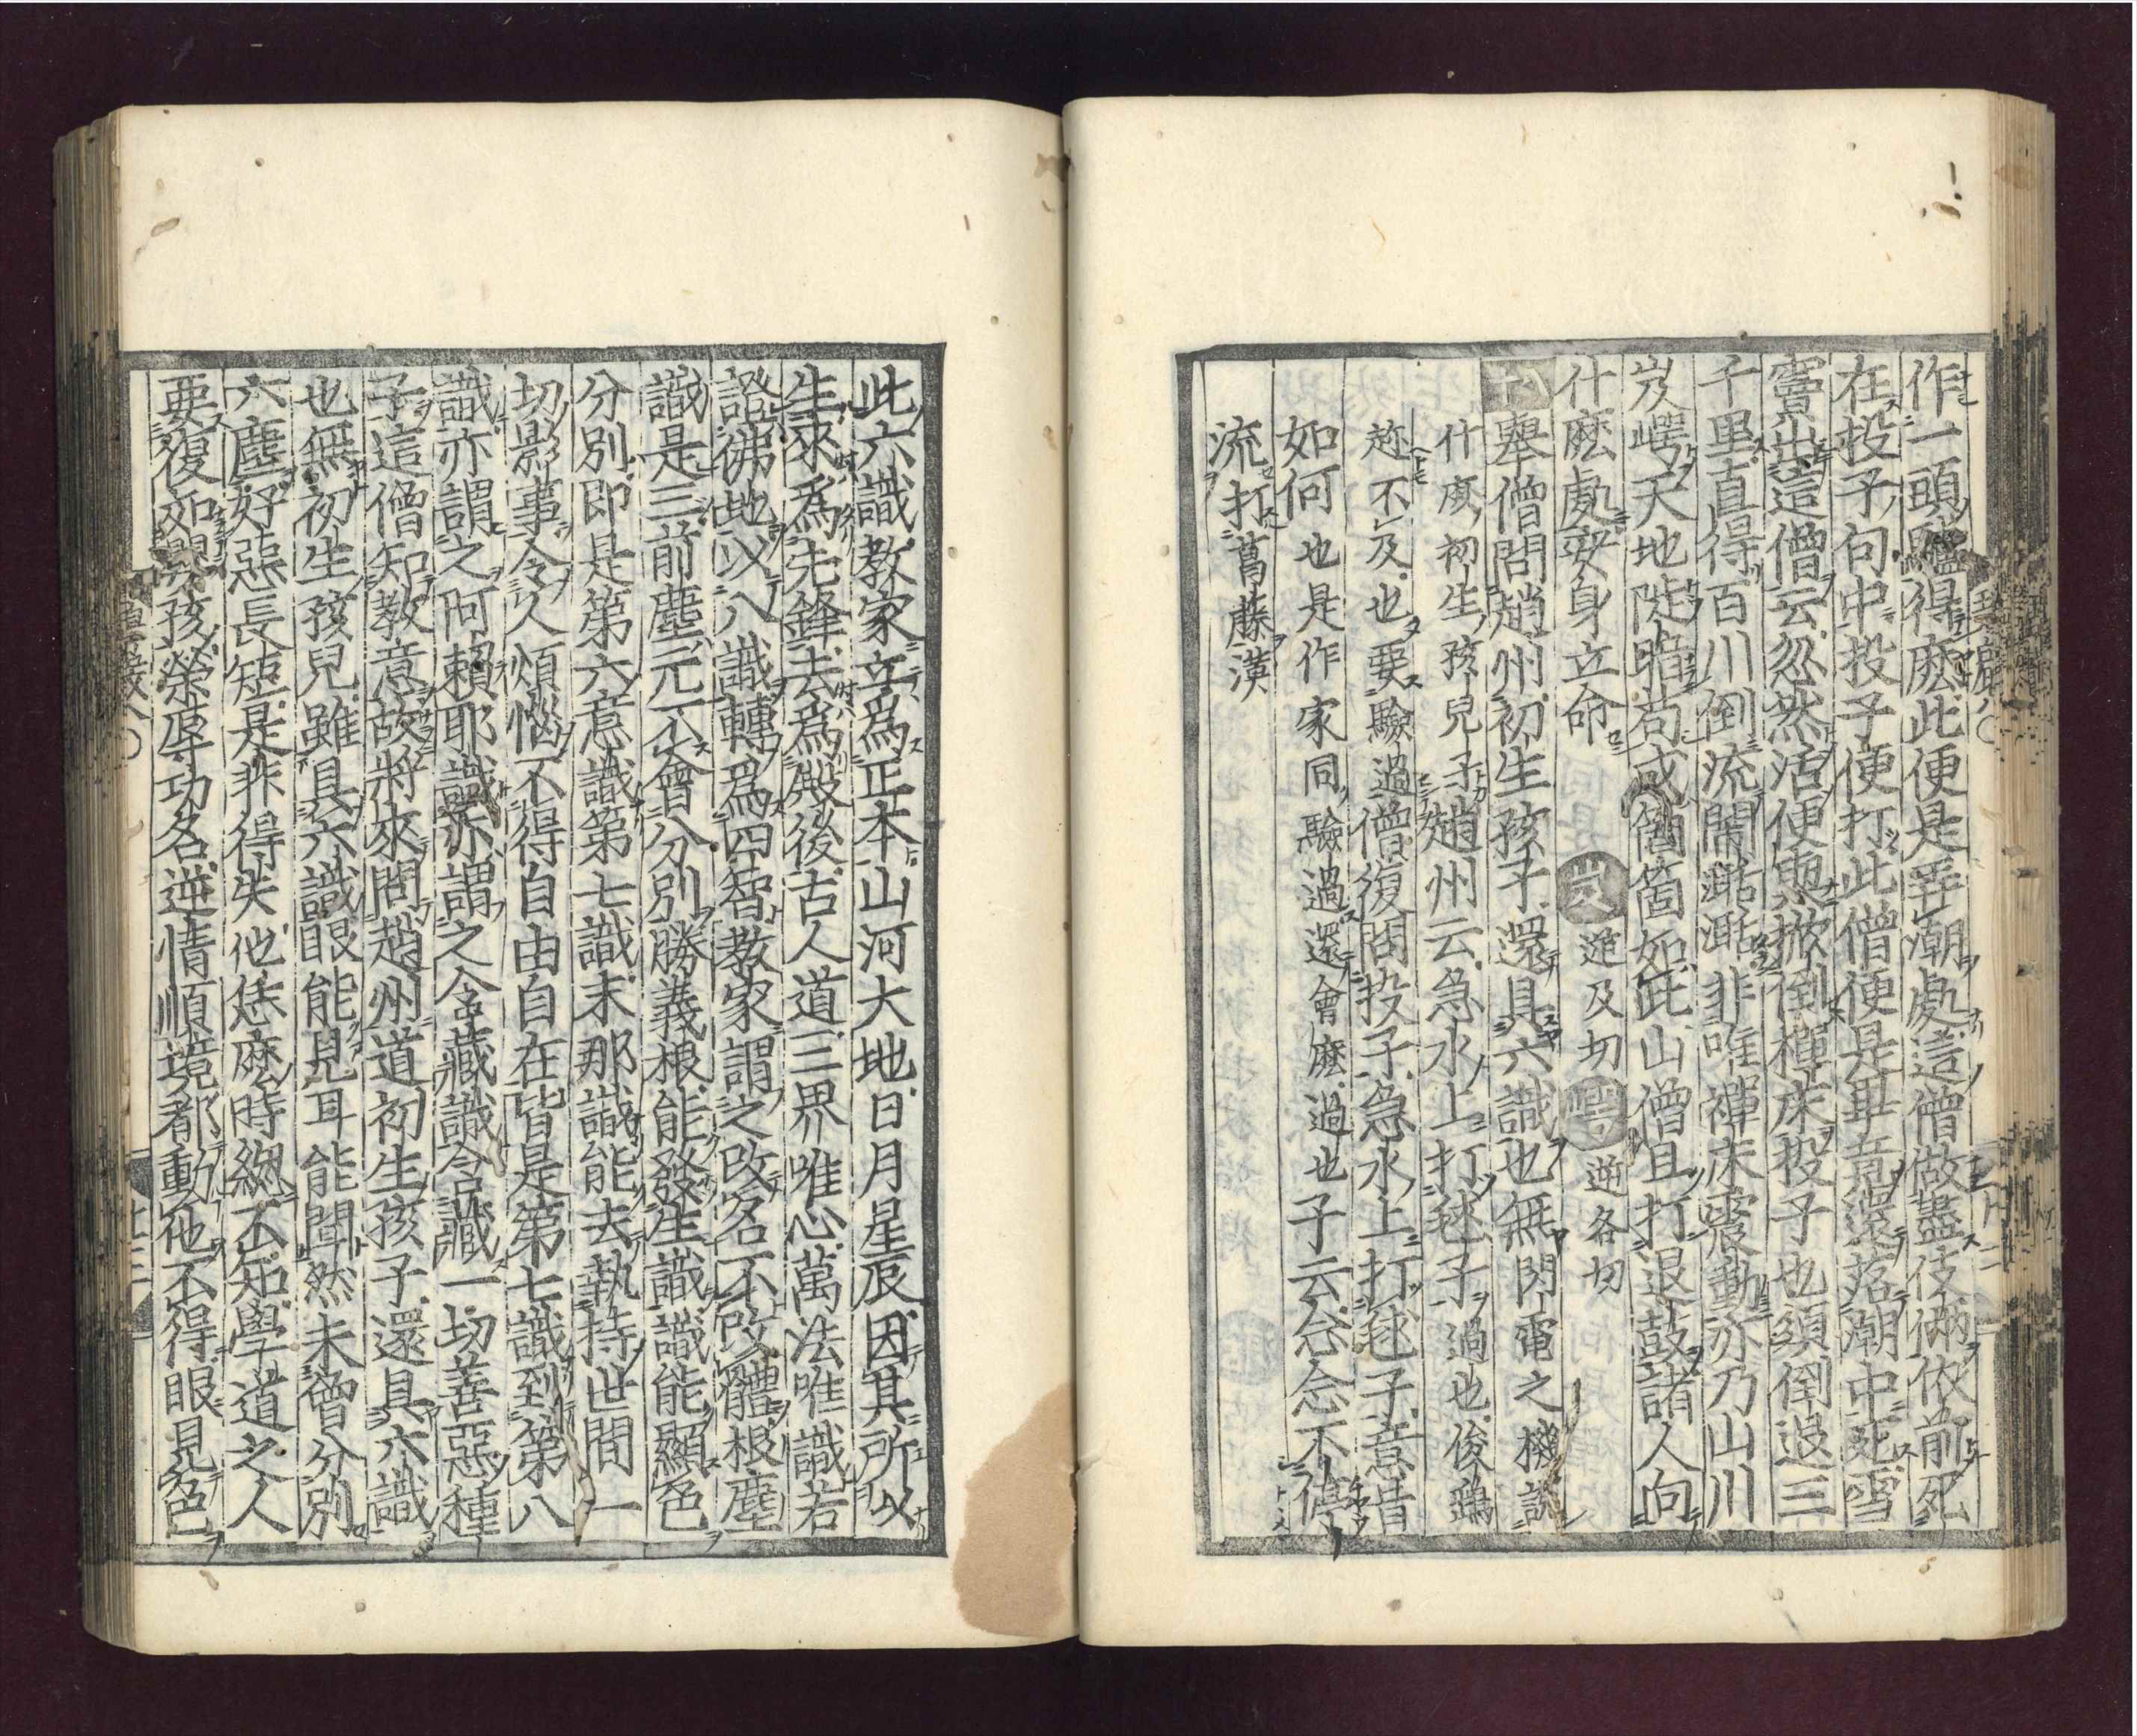 作一頭驢得麽此便是弄潮處這僧做盡伎倆依前死
在投子句中投子便打此僧便是畢竟還落潮中死雪
竇出這僧云忽然活便與掀倒禪床投子也須倒退三
千里直得百川倒流鬧𣶒𣶒非唯禪床震動亦乃山川
岌㟧天地陡暗苟或箇箇如此山僧且打退鼓諸人向
什麽處安身立命 岌 逆及切 㟧 逆各切
八十 舉僧問趙州初生孩子還具六識也無閃電之機說
什麽初生孩兒子趙州云急水上打毬子過也俊鷂
趂不及也要驗過僧復問投子急水上打毬子意旨
如何也是作家同驗過還會麽過也子云念念不停
流打葛藤漢
此六識教家立爲正本山河大地日月星辰因其所以
生來爲先鋒去爲殿後古人道三界唯心萬法唯識若
證佛地以八識轉爲四智教家謂之改名不改體根塵
識是三前塵元不會分別勝義根能發生識識能顯色
分別即是第六意識第七識末那識能去執持世間一
切影事令人煩惱不得自由自在皆是第七識到第八
識亦謂之阿賴耶識亦謂之含藏識含藏一切善惡種
子這僧知教意故將來問趙州道初生孩子還具六識
也無初生孩兒雖具六識眼能見耳能聞然未曾分別
六塵好惡長短是非得失他恁麽時總不知學道之人
要復如嬰孩榮辱功名逆情順境都動他不得眼見色